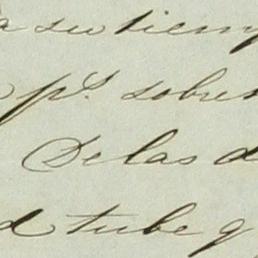 a su tiemp
p.s sobre
De las d
d tube q